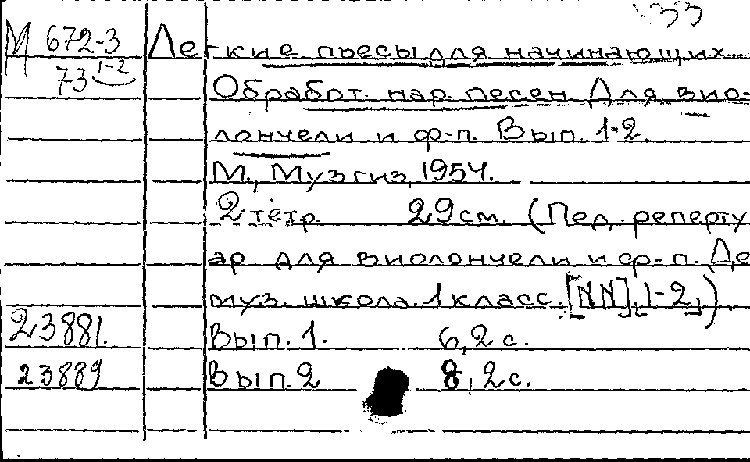 33
М 672-3 Легкие пьесы для начинающих.
73 1-2 Обработ. нар. песен. Для вио-
лончели и ф-п. Вып. 1-2.
М., Музгиз, 1954.
2 тетр. 29 см. (Пед. реперту
ар для виолончели и ф-п. Де
муз. школа. 1 класс. [NN], 1-2.)
23881. Вып. 1. 6, 2 с.
23889 Вып. 2 8, 2 с.